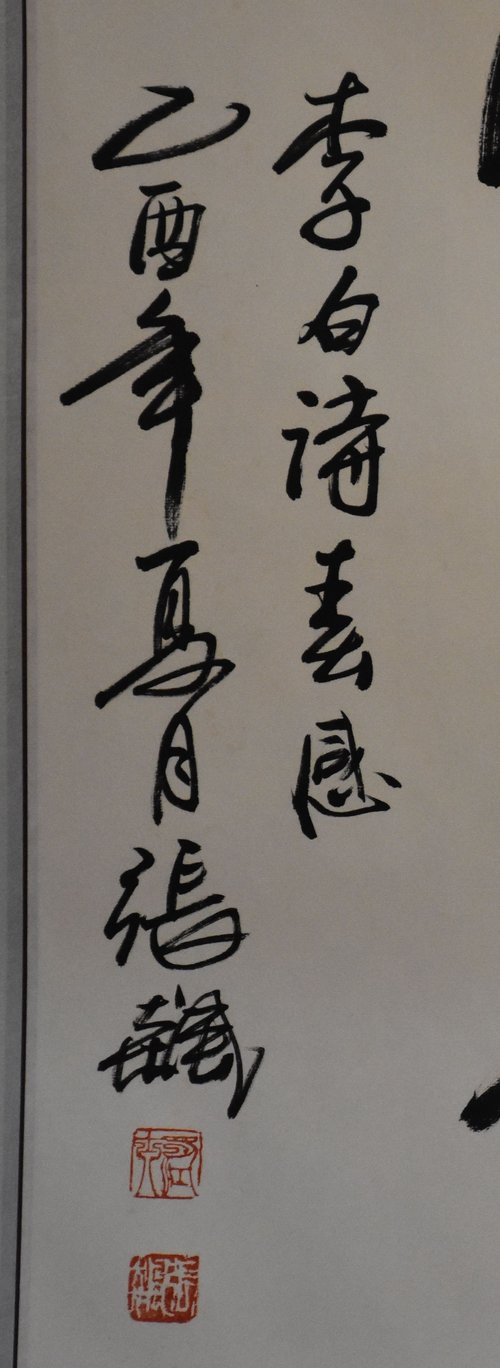 李白詩春感
乙酉年夏月張